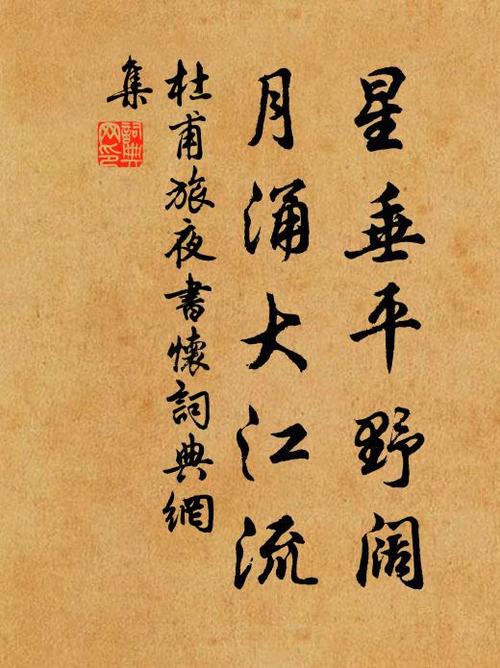 星垂平野阔
月涌大江流
杜甫旅夜書懷詞典網
集
詞典
网印